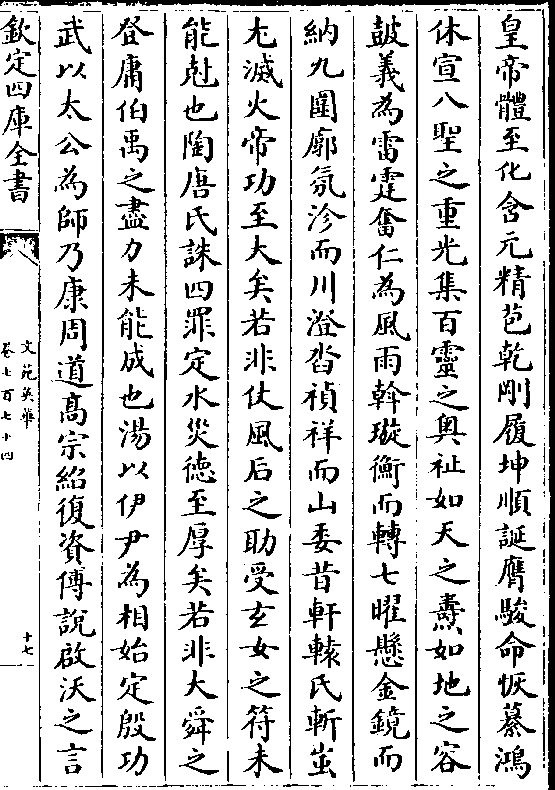 皇帝體至化含元精苞乾剛履坤順誕膺駿命恢纂鴻
休宣八聖之重光集百靈之奧祉如天之燾如地之容
鼓義為雷霆奮仁為風雨斡璇衡而轉七曜懸金鏡而
納九圍廓氛沴而川澄沓禎祥而山委昔軒轅氏斬蚩
尤滅火帝功至大矣若非仗風后之助受玄女之符未
能尅也陶唐氏誅四罪定水災德至厚矣若非大舜之
登庸伯禹之盡力未能成也湯以伊尹為相始定殷功
武以太公為師乃康周道髙宗紹復資傅說啟沃之言
欽定四庫全書
文苑英華
卷七百七十四
十七